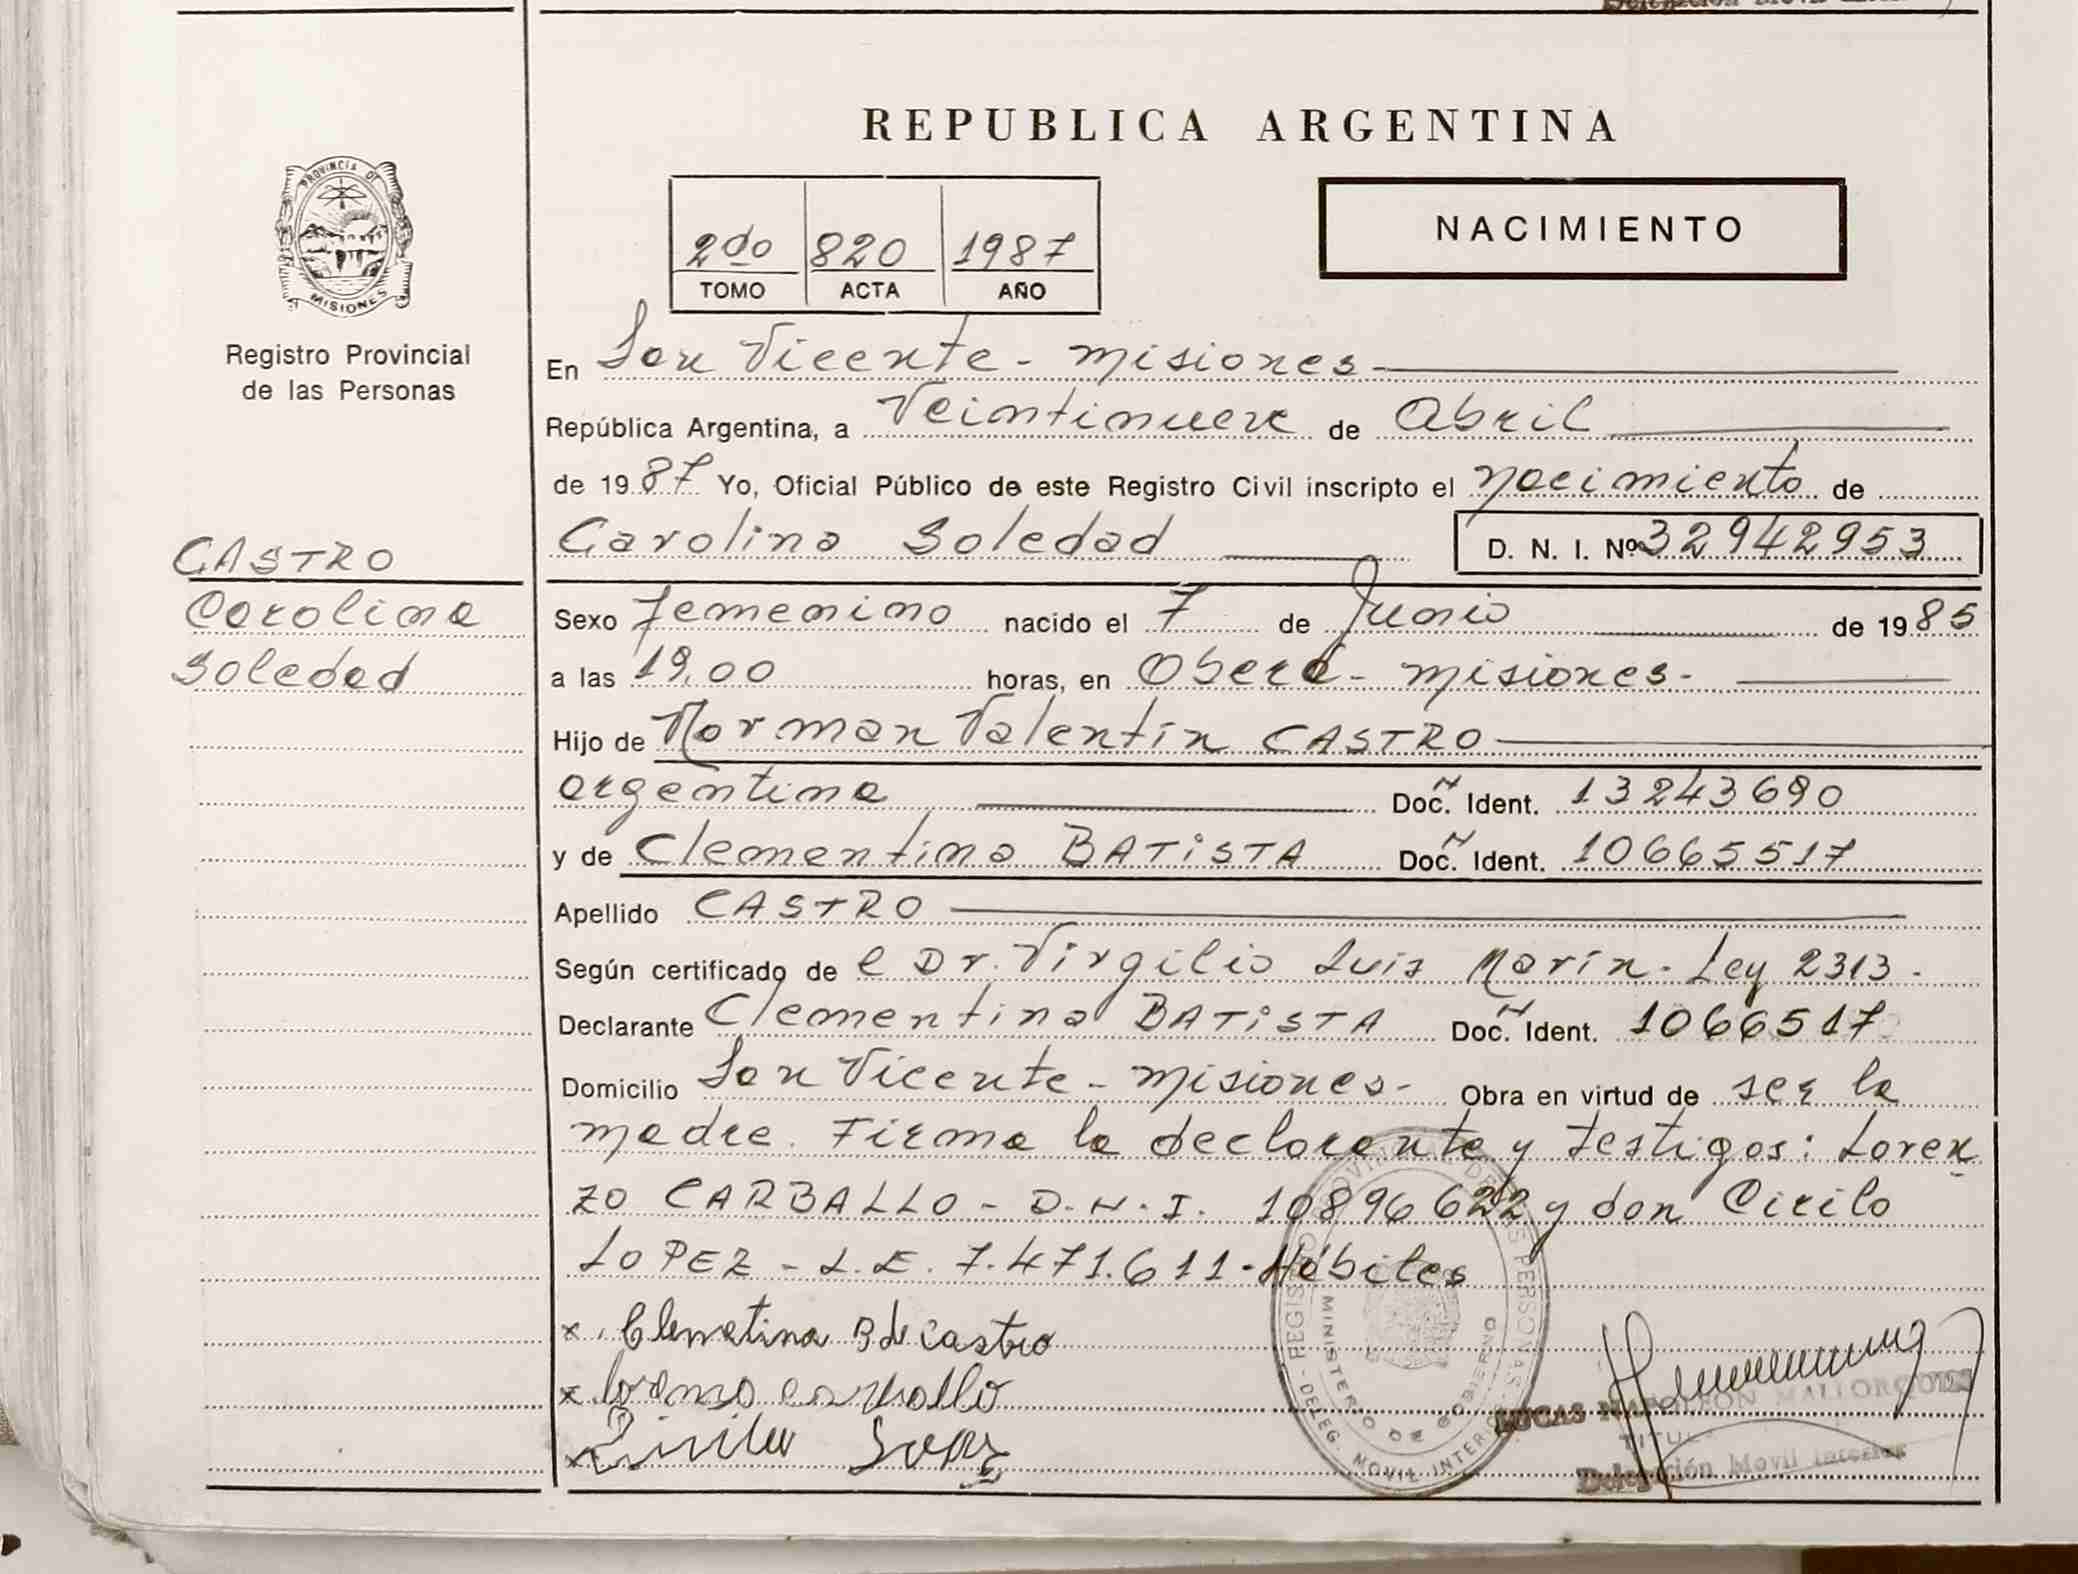 REPUBLICA ARGENTINA
PROVINCIA DE
MISIONES
Registro Provincial
de las Personas
2do 820 1987
TOMO ACTA AÑO
NACIMIENTO
En San Vicente - Misiones
República Argentina, a Veintinueve de Abril
de 1987 Yo, Oficial Público de este Registro Civil inscripto el Nacimiento de
Carolina Soledad D. N. I. Nº 32942953
CASTRO
Carolina
Soledad
Sexo Femenino nacido el 7 de Junio de 1985
a las 19,00 horas, en Oberá - Misiones -
Hijo de Norman Valentín CASTRO
argentina Doc. Ident. 13243690
y de Clementina BATiSTA Doc. Ident. 10665517
Apellido CASTRO
Según certificado de el Dr. Virgilio Luis Marín - Ley 2313 -
Declarante Clementina BATiSTA Doc. Ident. 1066517
Domicilio San Vicente - Misiones - Obra en virtud de ser la
madre. Firma la declarante y testigos: Loren
zo CARBALLO - D.N.I. 10896622 y don Cirilo
LOPEZ - L.E. 7.471.611 - Hábiles
x Clematina B de Castro
x Lorenzo carballo
x Cirilo Lopez
REGISTRO PROVINCIAL DE LAS PERSONAS
MINISTERIO DE GOBIERNO
DELEG. MOVIL INTERIOR
LUCAS NAPOLEON MALLORQUIN
TITULAR
Delegación Movil Interior